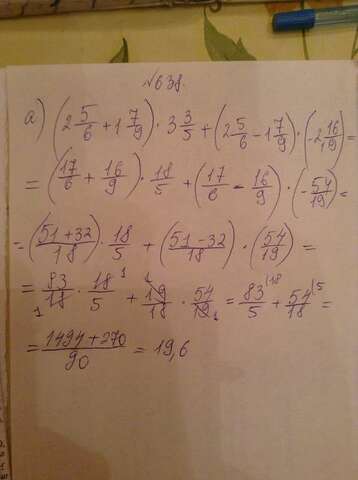 №638.
а) (2 5/6 + 1 7/9) · 3 3/5 + (2 5/6 - 1 7/9) · (-2 16/19) =
= (17/6 + 16/9) · 18/5 + (17/6 - 16/9) · (-54/19) =
= (51+32/18) · 18/5 + (51-32/18) · (54/19) =
= 83/18 · 18/5 + 19/18 · 54/19 = 83/5 + 54/18 =
= 1494+270/90 = 19,6